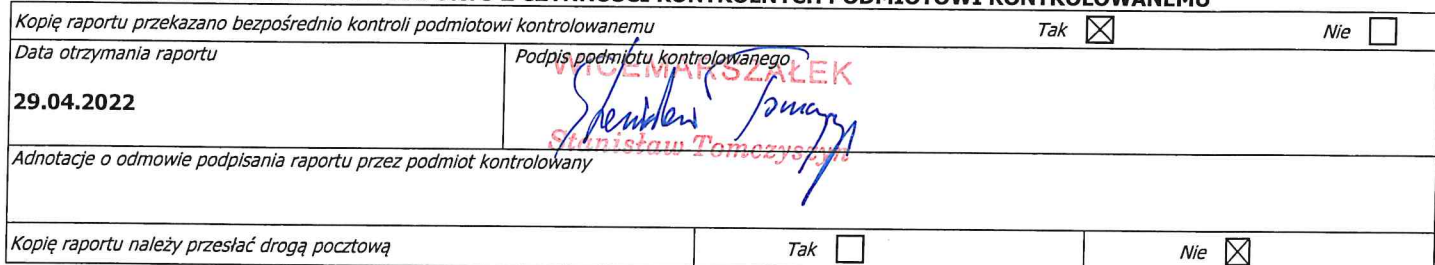 CZYNNOŚCI KONTROLNYCH PODMIOTOWI KONTROLOWANEMU
Kopię raportu przekazano bezpośrednio kontroli podmiotowi kontrolowanemu Tak ☒ Nie ☐
Data otrzymania raportu Podpis podmiotu kontrolowanego
WICEMARSZAŁEK
29.04.2022
Stanisław Tomczyszyn
Adnotacje o odmowie podpisania raportu przez podmiot kontrolowany
Kopię raportu należy przesłać drogą pocztową Tak ☐ Nie ☒